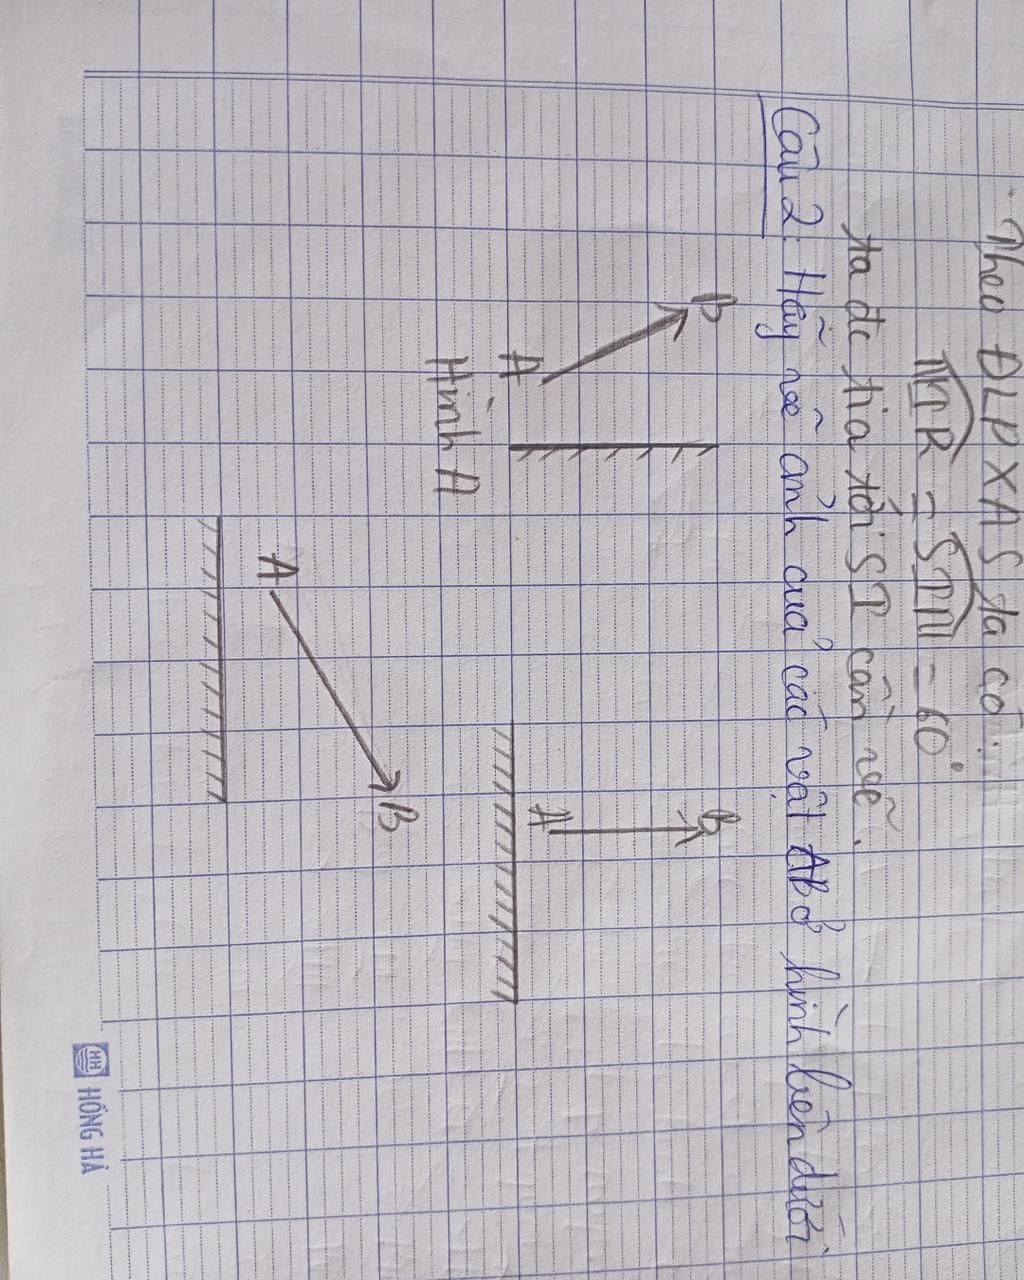 Theo ĐLPXAS ta có:
NIR = SIN = 60°
ta đc tia tới SI cần vẽ.
Câu 2: Hãy vẽ ảnh của các vật AB ở hình bên dưới
B
A
Hình A
B
A
A
B
HH HỒNG HÀ